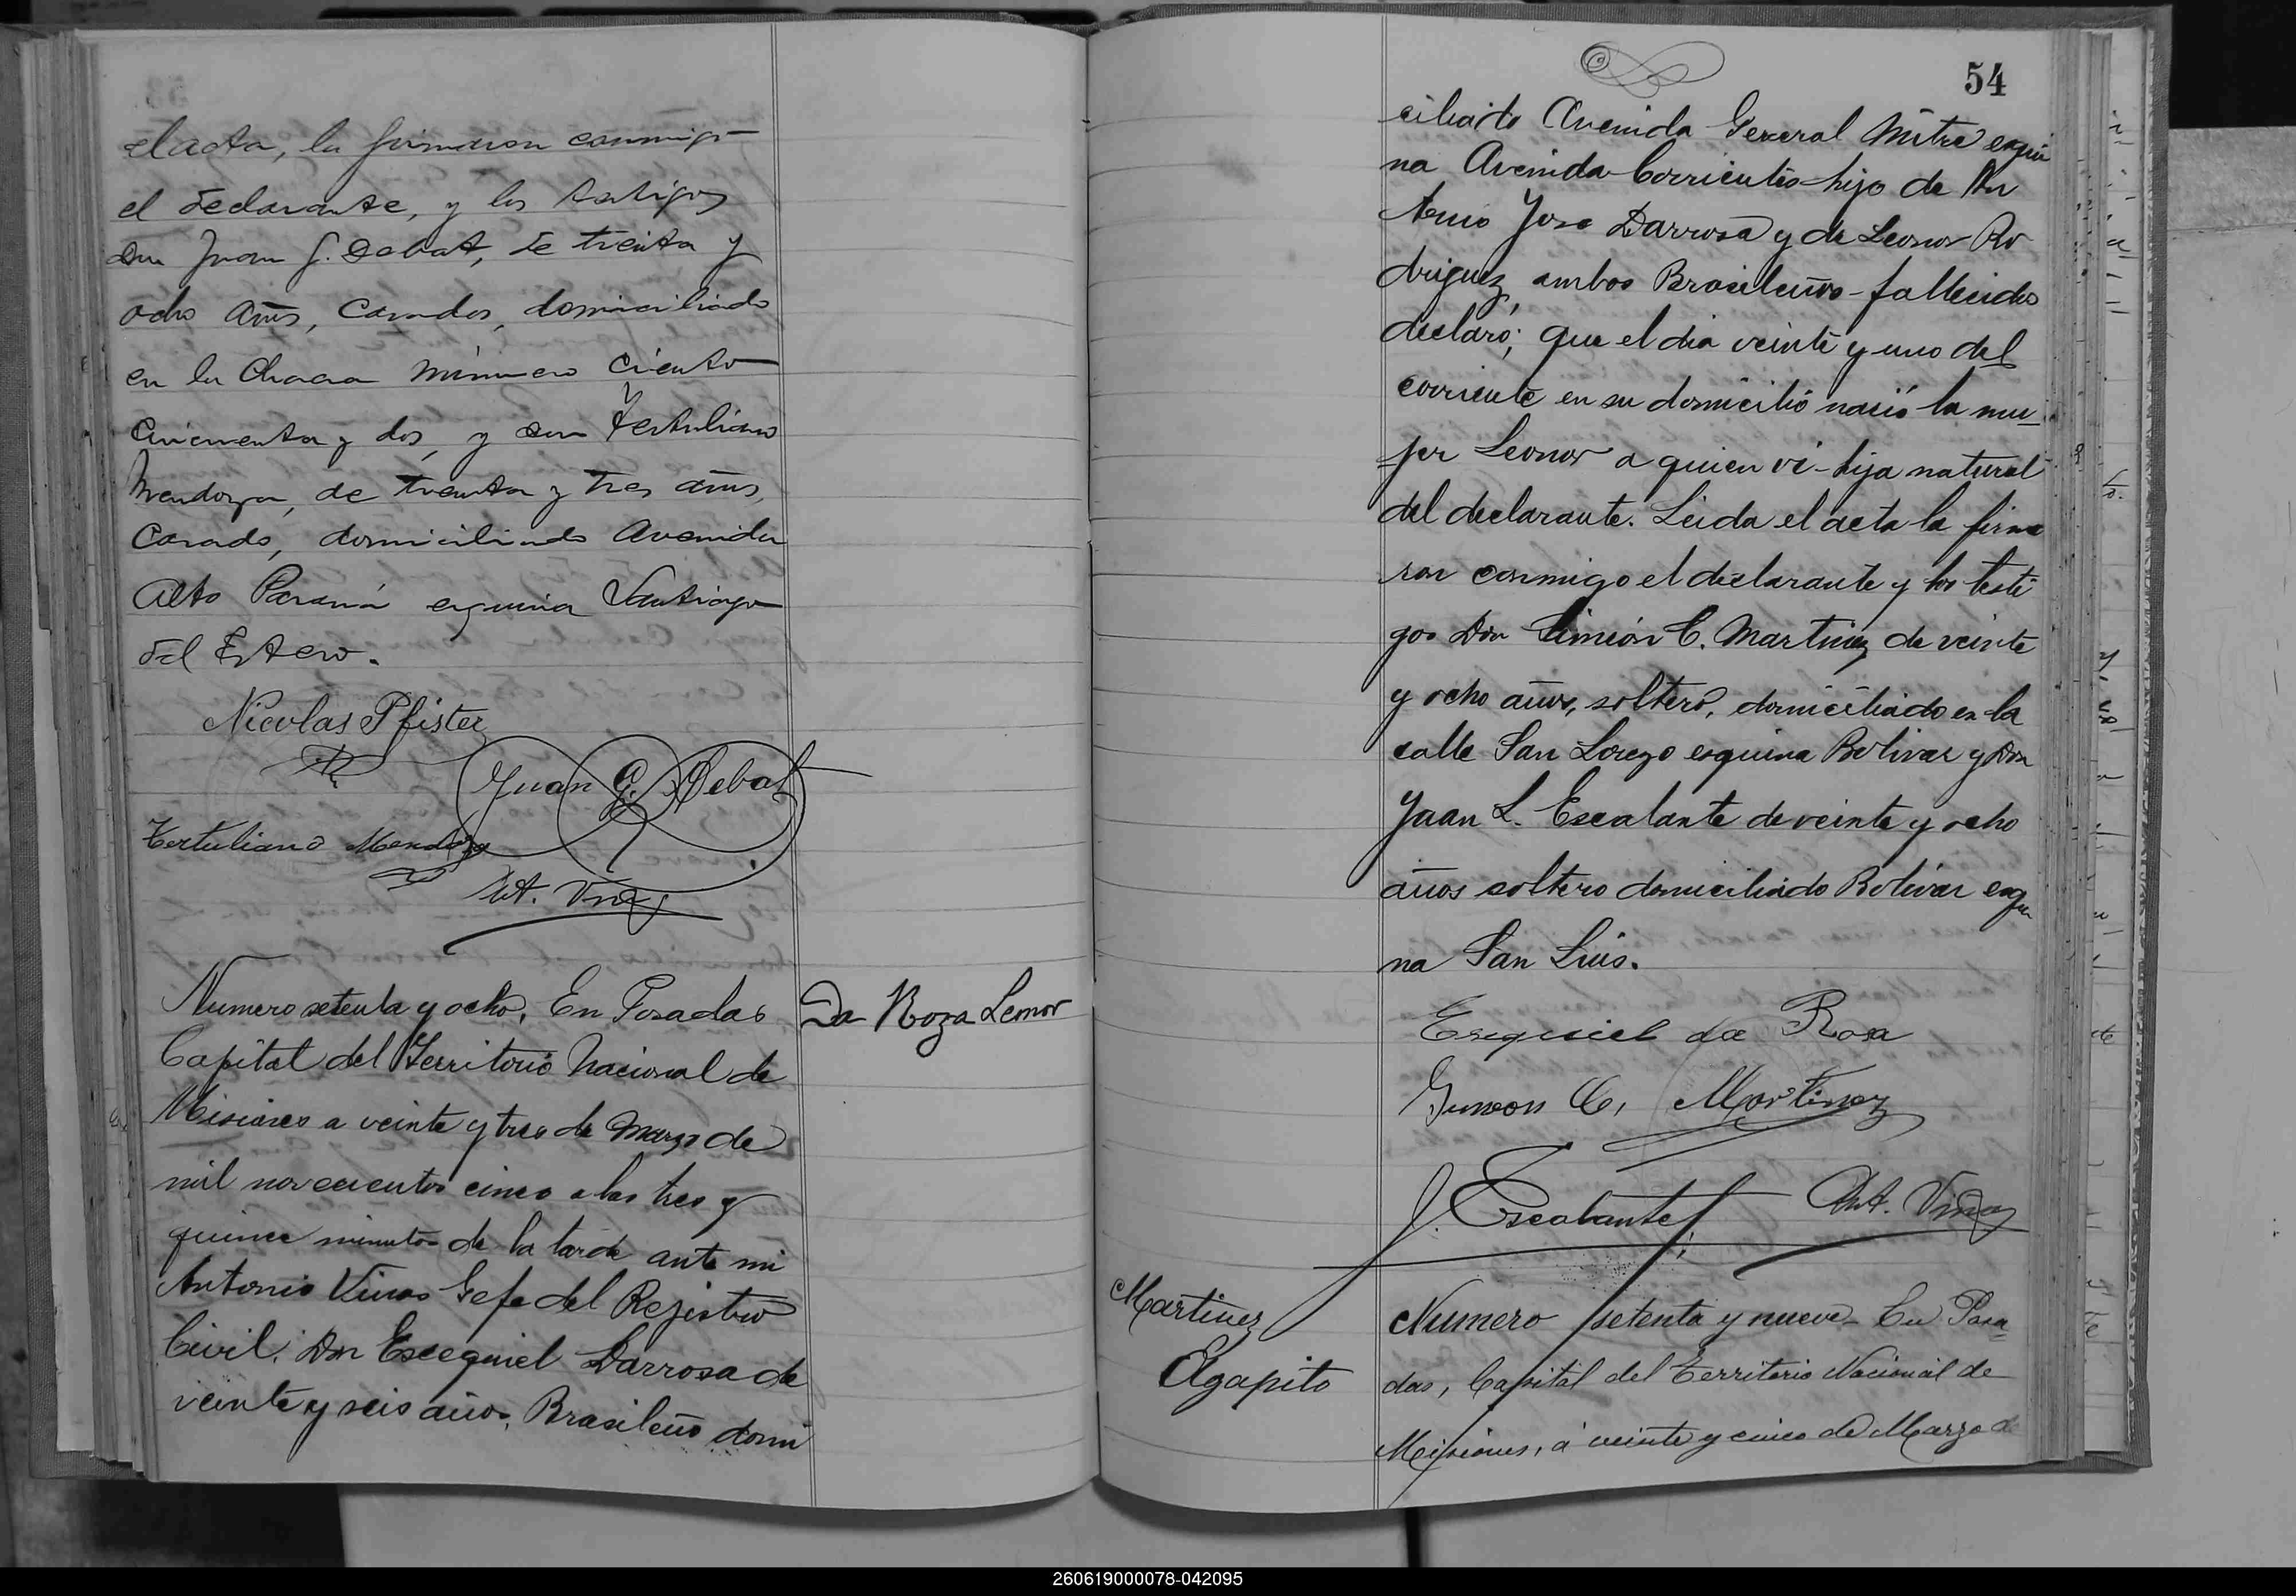 el acta, la firmaron conmigo
el declarante, y los testigos
don Juan G. Debat, de treinta y
ocho años, casados, domiciliado
en la Chacra número ciento
cincuenta y dos, y don Tertuliano
Mendoza, de treinta y tres años,
casado, domiciliado Avenida
Alto Paraná esquina Santiago
del Estero.
Nicolas Pfister
Juan G. Debat
Tertuliano Mendoza
Ant. Vinas
Numero setenta y ocho, En Posadas
Capital del Territorio Nacional de
Misiones a veinte y tres de Marzo de
mil novecientos cinco a las tres y
quince minutos de la tarde ante mi
Antonio Vinas Gefe del Rejistro
Civil, Don Escequiel Darrosa de
veinte y seis años, Brasileño domi
Da Roza Leonor
54
ciliado Avenida General Mitre esqui
na Avenida Corrientes hijo de An
tonio Jose Darrosa y de Leonor Ro
driguez, ambos Brasileños - fallecidos
declaró; que el dia veinte y uno del
corriente en su domicilio nació la mu
jer Leonor a quien vi - hija natural
del declarante. Leida el acta la firma
ron conmigo el declarante y los testi
gos Don Simeón C. Martinez de veinte
y ocho años, soltero, domiciliado en la
calle San Lorezo esquina Bolivar y Don
Juan L. Escalante de veinte y ocho
años soltero domiciliado Bolivar esqui
na San Luis.
Esequiel da Rosa
Simeon C. Martinez
J. Escalante
Ant. Vinas
Martinez
Agapito
Numero setenta y nueve - En Posa
das, Capital del Territorio Nacional de
Misiones, á veinte y cinco de Marzo de
260619000078-042095